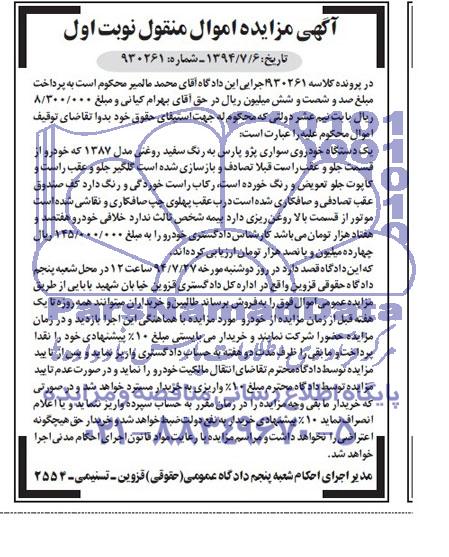 آگهی مزایده اموال منقول نوبت اول
تاریخ: ۱۳۹۴/۷/۶ ـ شماره: ۹۳۰۲۶۱
در پرونده کلاسه ۹۳۰۲۶۱ اجرایی این دادگاه آقای محمد مالمیر محکوم است به پرداخت
مبلغ صد و شصت و شش میلیون ریال در حق آقای بهرام کیانی و مبلغ ۸/۳۰۰/۰۰۰
ریال بابت نیم عشر دولتی که محکوم له جهت استیفای حقوق خود بدوا تقاضای توقیف
اموال محکوم علیه را عبارت است:
یک دستگاه خودروی سواری پژو پارس به رنگ سفید روغنی مدل ۱۳۸۷ که خودرو از
قسمت جلو و عقب راست قبلا تصادف و بازسازی شده است گلگیر جلو و عقب راست و
کاپوت جلو تعویض و رنگ خورده است، رکاب راست خوردگی و رنگ دارد کف صندوق
عقب تصادفی و صافکاری شده است درب عقب پهلوی چپ صافکاری و نقاشی شده است
موتور از قسمت بالا روغن ریزی دارد بیمه شخص ثالث ندارد خلافی خودرو هفتصد و
هفتاد هزار تومان می باشد کارشناس دادگستری خودرو را به مبلغ ۱۴۵/۰۰۰/۰۰۰ ریال
چهارده میلیون و پانصد هزار تومان ارزیابی کرده اند.
که این دادگاه قصد دارد در روز دوشنبه مورخه ۹۴/۷/۲۷ ساعت ۱۲ در محل شعبه پنجم
دادگاه حقوقی قزوین واقع در اداره کل دادگستری قزوین خیابان شهید بابایی از طریق
مزایده عمومی اموال فوق را به فروش برساند طالبین و خریداران میتوانند همه روزه تا یک
هفته قبل از زمان مزایده از خودرو مورد مزایده با هماهنگی این اجرا بازدید و در زمان
مزایده حضورا شرکت نمایند و خریدار می بایستی مبلغ ۱۰٪ پیشنهادی خود را نقدا
پرداخت و مابقی را ظرف مدت دو هفته به حساب دادگستری واریز نماید و پس از تایید
مزایده توسط دادگاه محترم تقاضای انتقال مالکیت خودرو را نماید و در صورت عدم تایید
مزایده توسط دادگاه محترم مبلغ ۱۰٪ واریزی به خریدار مسترد خواهد شد و در صورتی
که خریدار مابقی وجه مزایده را در زمان مقرر به حساب سپرده واریز ننماید و یا اعلام
انصراف نماید ۱۰٪ پیشنهادی خریدار به نفع دولت ضبط خواهد شد و خریدار حق هیچگونه
اعتراضی را نخواهد داشت و مراسم مزایده با رعایت مواد قانون اجرای احکام مدنی اجرا
خواهد شد.
مدیر اجرای احکام شعبه پنجم دادگاه عمومی (حقوقی) قزوین ـ تسنیمی ـ ۲۵۵۴
پایگاه اطلاع رسانی مناقصه و مزایده